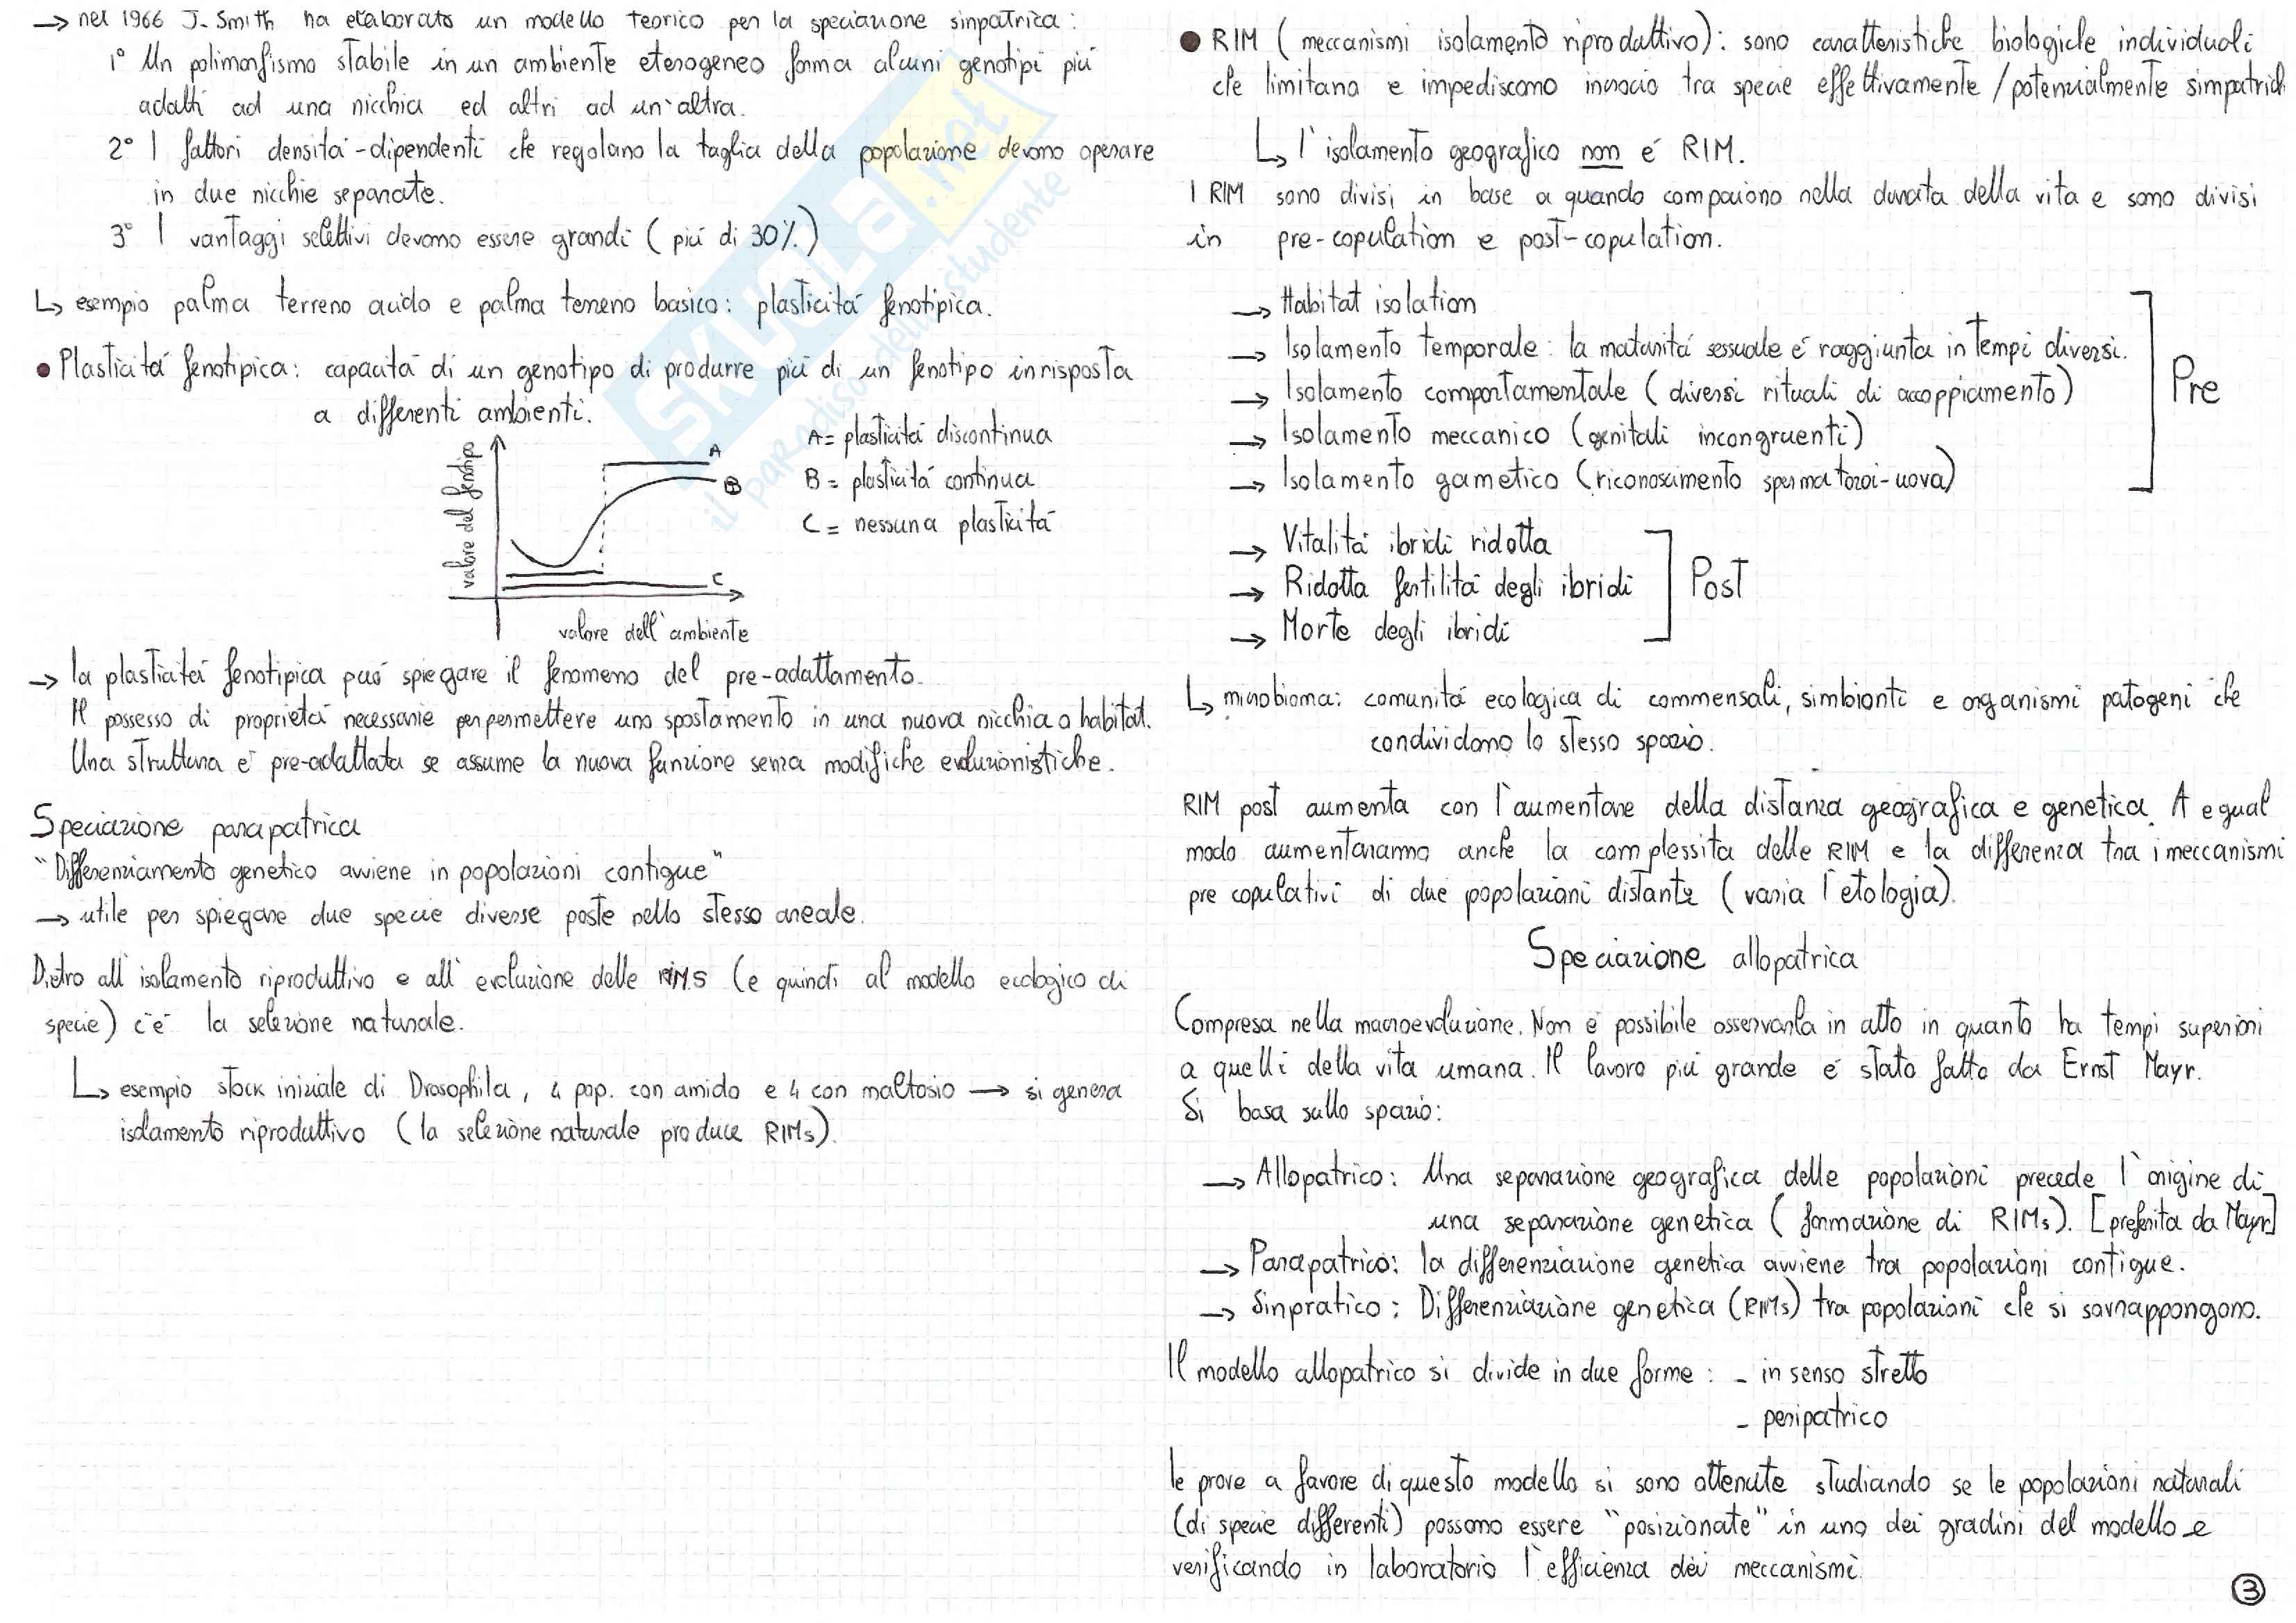 → nel 1966 J. Smith ha elaborato un modello teorico per la speciazione sinpatrica:
1° Un polimorfismo stabile in un ambiente eterogeneo forma alcuni genotipi più
adatti ad una nicchia ed altri ad un'altra.
2° I fattori densità-dipendenti che regolano la taglia della popolazione devono operare
in due nicchie separate.
3° I vantaggi selettivi devono essere grandi (più di 30%)
↳ esempio palma terreno acido e palma terreno basico: plasticità fenotipica.
• Plasticità fenotipica: capacità di un genotipo di produrre più di un fenotipo in risposta
a differenti ambienti.
valore del fenotipo
A
B
C
valore dell'ambiente
A = plasticità discontinua
B = plasticità continua
C = nessuna plasticità
→ la plasticità fenotipica può spiegare il fenomeno del pre-adattamento.
Il possesso di proprietà necessarie per permettere uno spostamento in una nuova nicchia o habitat.
Una struttura è pre-adattata se assume la nuova funzione senza modifiche evoluzionistiche.
Speciazione parapatrica
"Differenziamento genetico avviene in popolazioni contigue"
→ utile per spiegare due specie diverse poste nello stesso areale.
Dietro all'isolamento riproduttivo e all'evoluzione delle RIMS (e quindi al modello ecologico di
specie) c'è la selezione naturale.
↳ esempio stock iniziale di Drosophila, 4 pop. con amido e 4 con maltosio → si genera
isolamento riproduttivo (la selezione naturale produce RIMs).
• RIM (meccanismi isolamento riproduttivo): sono caratteristiche biologiche individuali
che limitano e impediscono incrocio tra specie effettivamente/potenzialmente simpatrich
↳ l'isolamento geografico non è RIM.
I RIM sono divisi in base a quando compaiono nella durata della vita e sono divisi
in pre-copulation e post-copulation.
→ Habitat isolation
→ Isolamento temporale: la maturità sessuale è raggiunta in tempi diversi.
→ Isolamento comportamentale (diversi rituali di accoppiamento)
→ Isolamento meccanico (genitali incongruenti)
→ Isolamento gametico (riconoscimento spermatozoi-uova)
Pre
→ Vitalità ibridi ridotta
→ Ridotta fertilità degli ibridi
→ Morte degli ibridi
Post
↳ microbioma: comunità ecologica di commensali, simbionti e organismi patogeni che
condividono lo stesso spazio.
RIM post aumenta con l'aumentare della distanza geografica e genetica. A egual
modo aumentaranno anche la complessita delle RIM e la differenza tra i meccanismi
pre copulativi di due popolazioni distante (varia l'etologia).
Speciazione allopatrica
Compresa nella macroevoluzione. Non è possibile osservarla in atto in quanto ha tempi superiori
a quelli della vita umana. Il lavoro più grande è stato fatto da Ernst Mayr.
Si basa sullo spazio:
→ Allopatrico: Una separazione geografica delle popolazioni precede l'origine di
una separazione genetica (formazione di RIMs). [preferita da Mayr]
→ Parapatrico: la differenziazione genetica avviene tra popolazioni contigue.
→ Sinpratico: Differenziazione genetica (RIMs) tra popolazioni che si sovrappongono.
Il modello allopatrico si divide in due forme: - in senso stretto
- peripatrico
le prove a favore di questo modello si sono ottenute studiando se le popolazioni naturali
(di specie differenti) possono essere "posizionate" in uno dei gradini del modello e
verificando in laboratorio l'efficienza dei meccanismi
3
SKUOLA.net
il paradiso dello studente